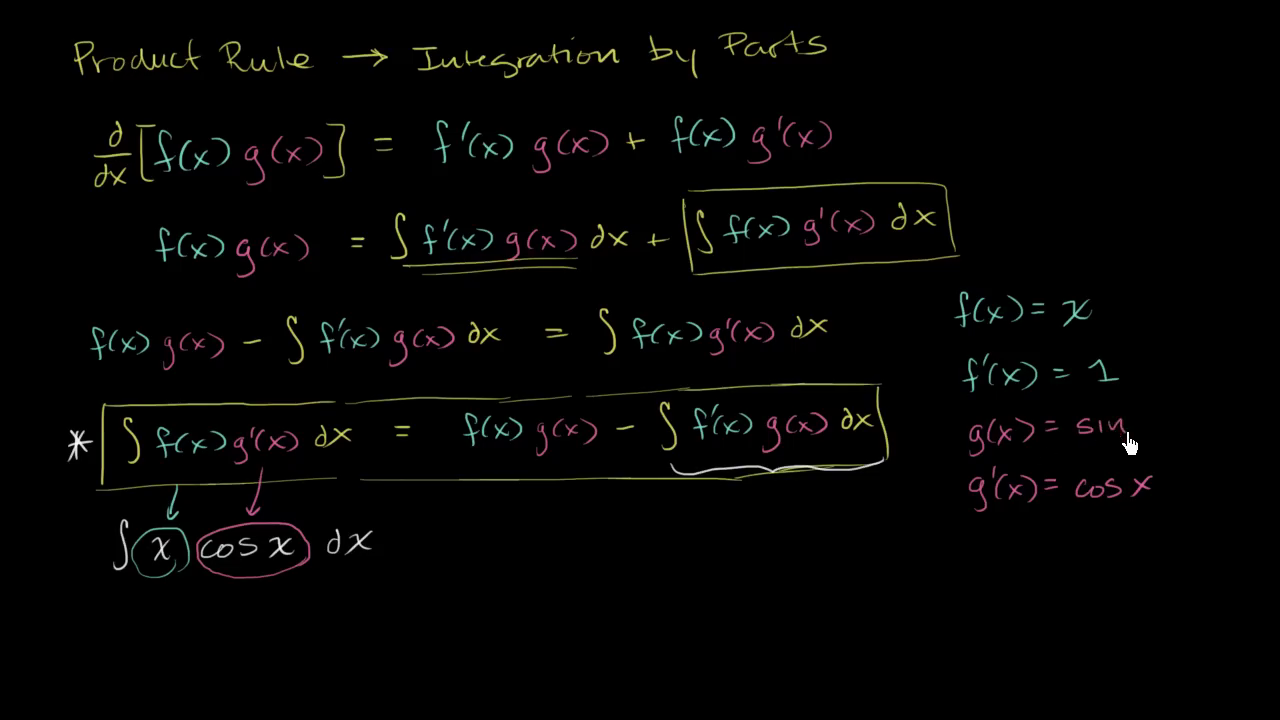 Product Rule → Integration by Parts
d/dx [f(x) g(x)] = f'(x) g(x) + f(x) g'(x)
f(x) g(x) = ∫ f'(x) g(x) dx + ∫ f(x) g'(x) dx
f(x) g(x) - ∫ f'(x) g(x) dx = ∫ f(x) g'(x) dx
* ∫ f(x) g'(x) dx = f(x) g(x) - ∫ f'(x) g(x) dx
∫ x cos x dx
f(x) = x
f'(x) = 1
g(x) = sin
g'(x) = cos x